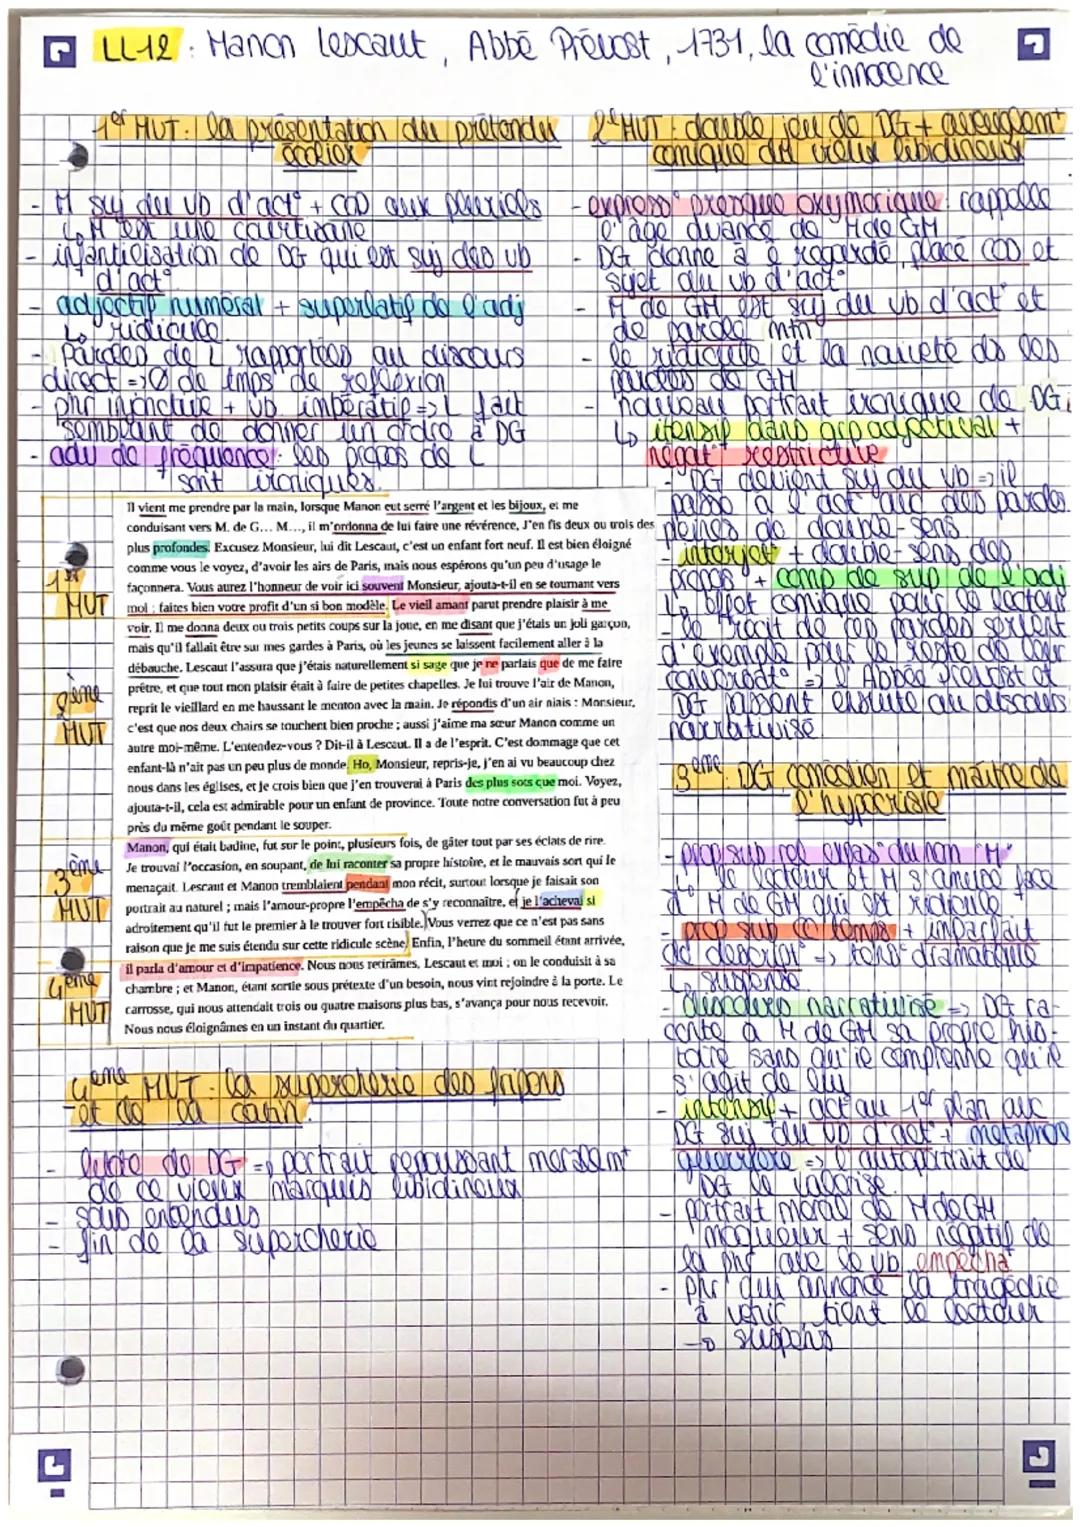 LL12 : Manon Lescaut, Abbé Prévost, 1731, la comédie de
l'innocence
1er MUT : la présentation du prétendu
écolier
- M suj du vb d'act° + COD aux pluriels
↳ M est une courtisane
- infantilisation de DG qui est suj des vb
d'act°
- adjectif numéral + superlatif de l'adj
↳ ridicule
- Paroles de L rapportées au discours
direct => Ø de tmps de réflexion
- phr injonctive + vb impératif => L fait
semblant de donner un ordre à DG
- adv de fréquence : les propos de L
sont ironiques
2e MUT : double jeu de DG + aveuglemt
comique du vieux libidineux
- express° presque oxymorique rappelle
l'âge avancé de M de GM
- DG donne à ê regardé, placé COD et
sujet du vb d'act°
- M de GM est suj du vb d'act° et
de parole mtn
- le ridicule et la naïveté ds les
paroles de GM
- nouveau portrait ironique de DG
↳ itensif dans grp adjectival +
négat° restrictive
- DG devient suj du vb => il
passe à l'act° avc des paroles
pleines de double-sens
- interject° + double-sens des
propos + comp de sup de l'adj
↳ effet comique pour le lecteur
- le récit de ces paroles servent
d'exemple pour le reste de leur
conversat° => l'Abbée Prévost et
DG passent ensuite au discours
narrativisé
1er
MUT
2ème
MUT
3ème
MUT
4ème
MUT
Il vient me prendre par la main, lorsque Manon eut serré l'argent et les bijoux, et me
conduisant vers M. de G... M..., il m'ordonna de lui faire une révérence, J'en fis deux ou trois des
plus profondes. Excusez Monsieur, lui dit Lescaut, c'est un enfant fort neuf. Il est bien éloigné
comme vous le voyez, d'avoir les airs de Paris, mais nous espérons qu'un peu d'usage le
façonnera. Vous aurez l'honneur de voir ici souvent Monsieur, ajouta-t-il en se tournant vers
moi ; faites bien votre profit d'un si bon modèle. Le vieil amant parut prendre plaisir à me
voir. Il me donna deux ou trois petits coups sur la joue, en me disant que j'étais un joli garçon,
mais qu'il fallait être sur mes gardes à Paris, où les jeunes se laissent facilement aller à la
débauche. Lescaut l'assura que j'étais naturellement si sage que je ne parlais que de me faire
prêtre, et que tout mon plaisir était à faire de petites chapelles. Je lui trouve l'air de Manon,
reprit le vieillard en me haussant le menton avec la main. Je répondis d'un air niais : Monsieur,
c'est que nos deux chairs se touchent bien proche ; aussi j'aime ma sœur Manon comme un
autre moi-même. L'entendez-vous ? Dit-il à Lescaut. Il a de l'esprit. C'est dommage que cet
enfant-là n'ait pas un peu plus de monde. Ho, Monsieur, repris-je, j'en ai vu beaucoup chez
nous dans les églises, et je crois bien que j'en trouverai à Paris des plus sots que moi. Voyez,
ajouta-t-il, cela est admirable pour un enfant de province. Toute notre conversation fut à peu
près du même goût pendant le souper.
Manon, qui était badine, fut sur le point, plusieurs fois, de gâter tout par ses éclats de rire.
Je trouvai l'occasion, en soupant, de lui raconter sa propre histoire, et le mauvais sort qui le
menaçait. Lescaut et Manon tremblaient pendant mon récit, surtout lorsque je faisais son
portrait au naturel ; mais l'amour-propre l'empêcha de s'y reconnaître, et je l'achevai si
adroitement qu'il fut le premier à le trouver fort risible. Vous verrez que ce n'est pas sans
raison que je me suis étendu sur cette ridicule scène. Enfin, l'heure du sommeil étant arrivée,
il parla d'amour et d'impatience. Nous nous retirâmes, Lescaut et moi ; on le conduisit à sa
chambre ; et Manon, étant sortie sous prétexte d'un besoin, nous vint rejoindre à la porte. Le
carrosse, qui nous attendait trois ou quatre maisons plus bas, s'avança pour nous recevoir.
Nous nous éloignâmes en un instant du quartier.
3eme : DG, comédien et maître de
l'hypocrisie
- prop sub rel expas° du nom "M"
↳ le lecteur et M s'amuse face
à M de GM qui est ridicule
- prop sub cc temps + imparfait
de descript° => tons dramatique
↳ suspense
- discours narrativisé => DG ra-
conte à M de GM sa propre his-
toire sans qu'il comprenne qu'il
s'agit de lui
- intensif + act° au 1er plan avc
DG suj du vb d'act° + métaphore
guerrière => l'autoportrait de
DG le valorise
- portrait moral de M de GM
moqueur + sens négatif de
la phr avc le vb "empêcha"
- phr qui annonce la tragédie
à venir, tient le lecteur
→ suspens
4eme MUT : la supercherie des fripons
et de la catin
- litote de DG => portrait repoussant moralemt
de ce vieux marquis libidineux
- sous entendus
- fin de la supercherie